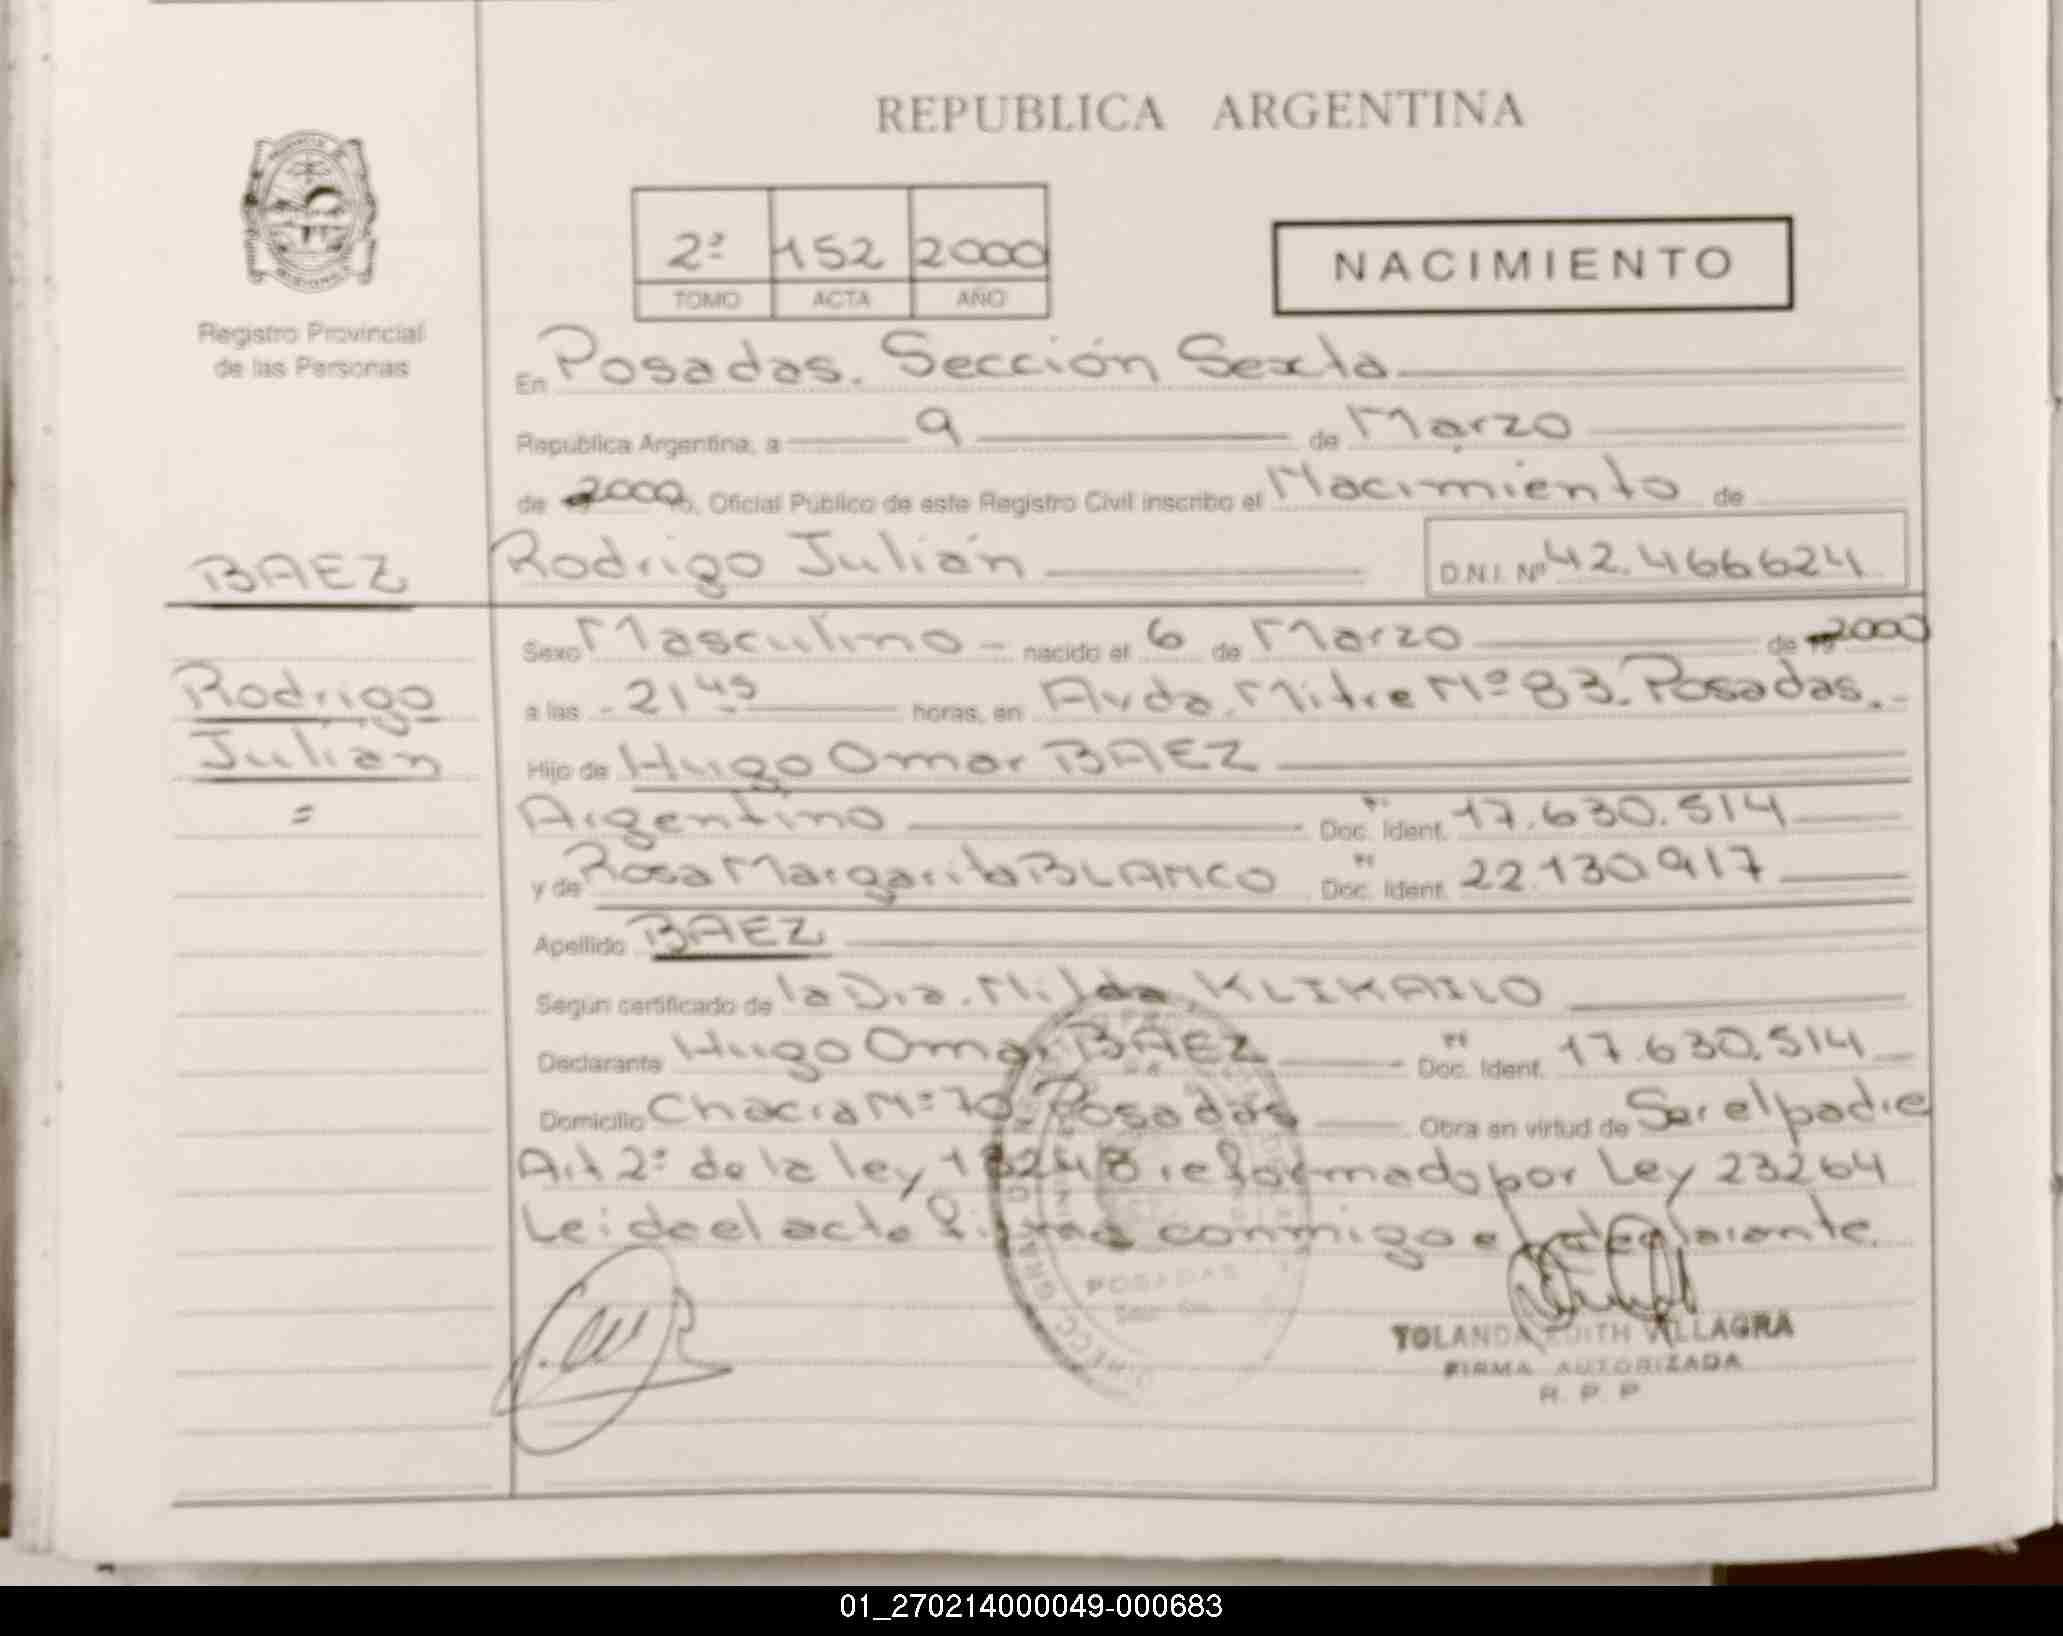 REPUBLICA ARGENTINA
2º 152 2000
TOMO ACTA AÑO
NACIMIENTO
Registro Provincial
de las Personas
En Posadas. Sección Sexta
Republica Argentina, a 9 de Marzo
de 2000, Oficial Público de este Registro Civil inscribo el Nacimiento de
BAEZ
Rodrigo Julián
D.N.I. Nº 42.466624
Rodrigo
Julián
=
Sexo Masculino - nacido el 6 de Marzo de 2000
a las - 21 45 horas, en Avda. Mitre Nº 83. Posadas.-
Hijo de Hugo Omar BAEZ
Argentino Doc. Ident. 17.630.514
y de Rosa Margarita BLANCO Doc. Ident. 22.130.917
Apellido BAEZ
Según certificado de la Dra. Nilda KLIKAILO
Declarante Hugo Omar BAEZ Doc. Ident. 17.630.514
Domicilio Chacra Nº 70 Posadas Obra en virtud de Ser el padre
Art 2º de la ley 18248 reformado por Ley 23264
Leida el acta firma conmigo el declarante.
POSADAS
YOLANDA EDITH VILLAGRA
FIRMA AUTORIZADA
R. P. P
01_270214000049-000683